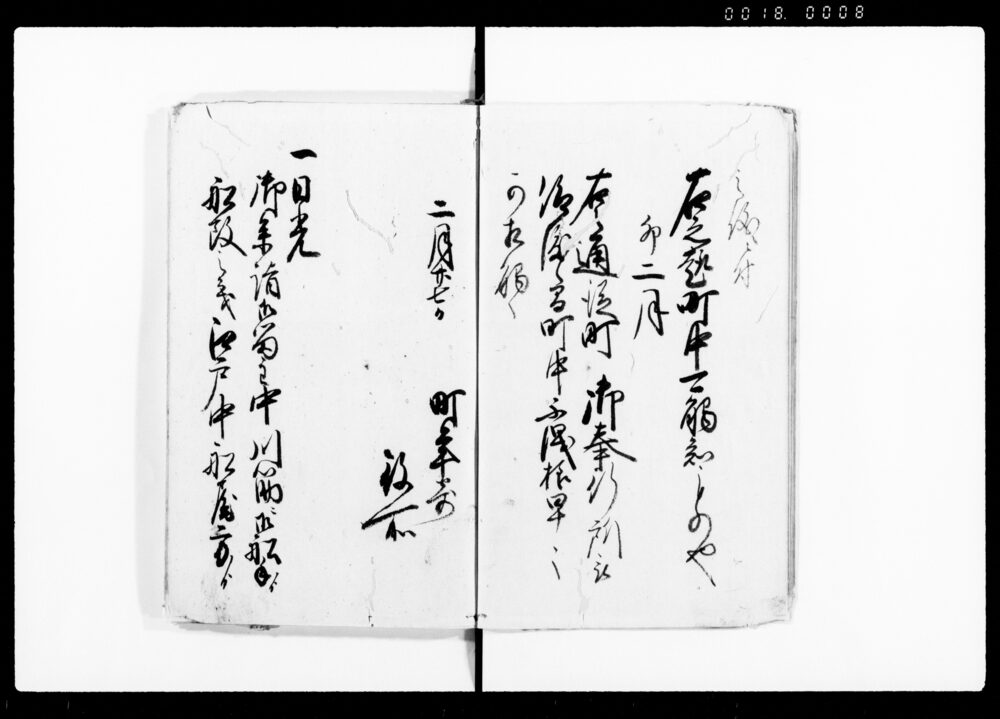 0018. 0008
右之趣町中可触知もの也
卯二月
右之通従町御奉行所被
仰渡候間町中不洩様早々
可相触候
二月廿七日
町年寄
役所
一日光
御参詣御留主中川筋御船
船改之義江戸中船